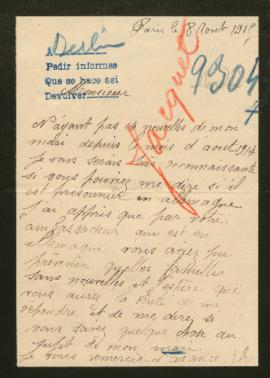 Paris le 8 Aout 1915
Berlin
A
Pedir informes
Que se hace asi
Devolver
Jacquet
9304
Monsieur
N'ayant pas de nouvelles de mon
mari depuis le mois d'aout 1914
Je vous serais reconnaissante
si vous pouviez me dire si il
est prisonnier en allemagne
j'ai appris que par votre
ambassadeur qui est en
allemagne vous aviez pu
prévenir quelques familles
sans nouvelles et j'espère que
vous aurez la bonté de me
répondre et de me dire si
vous savez quelque chose au
sujet de mon mari
Je vous remercie d'avance